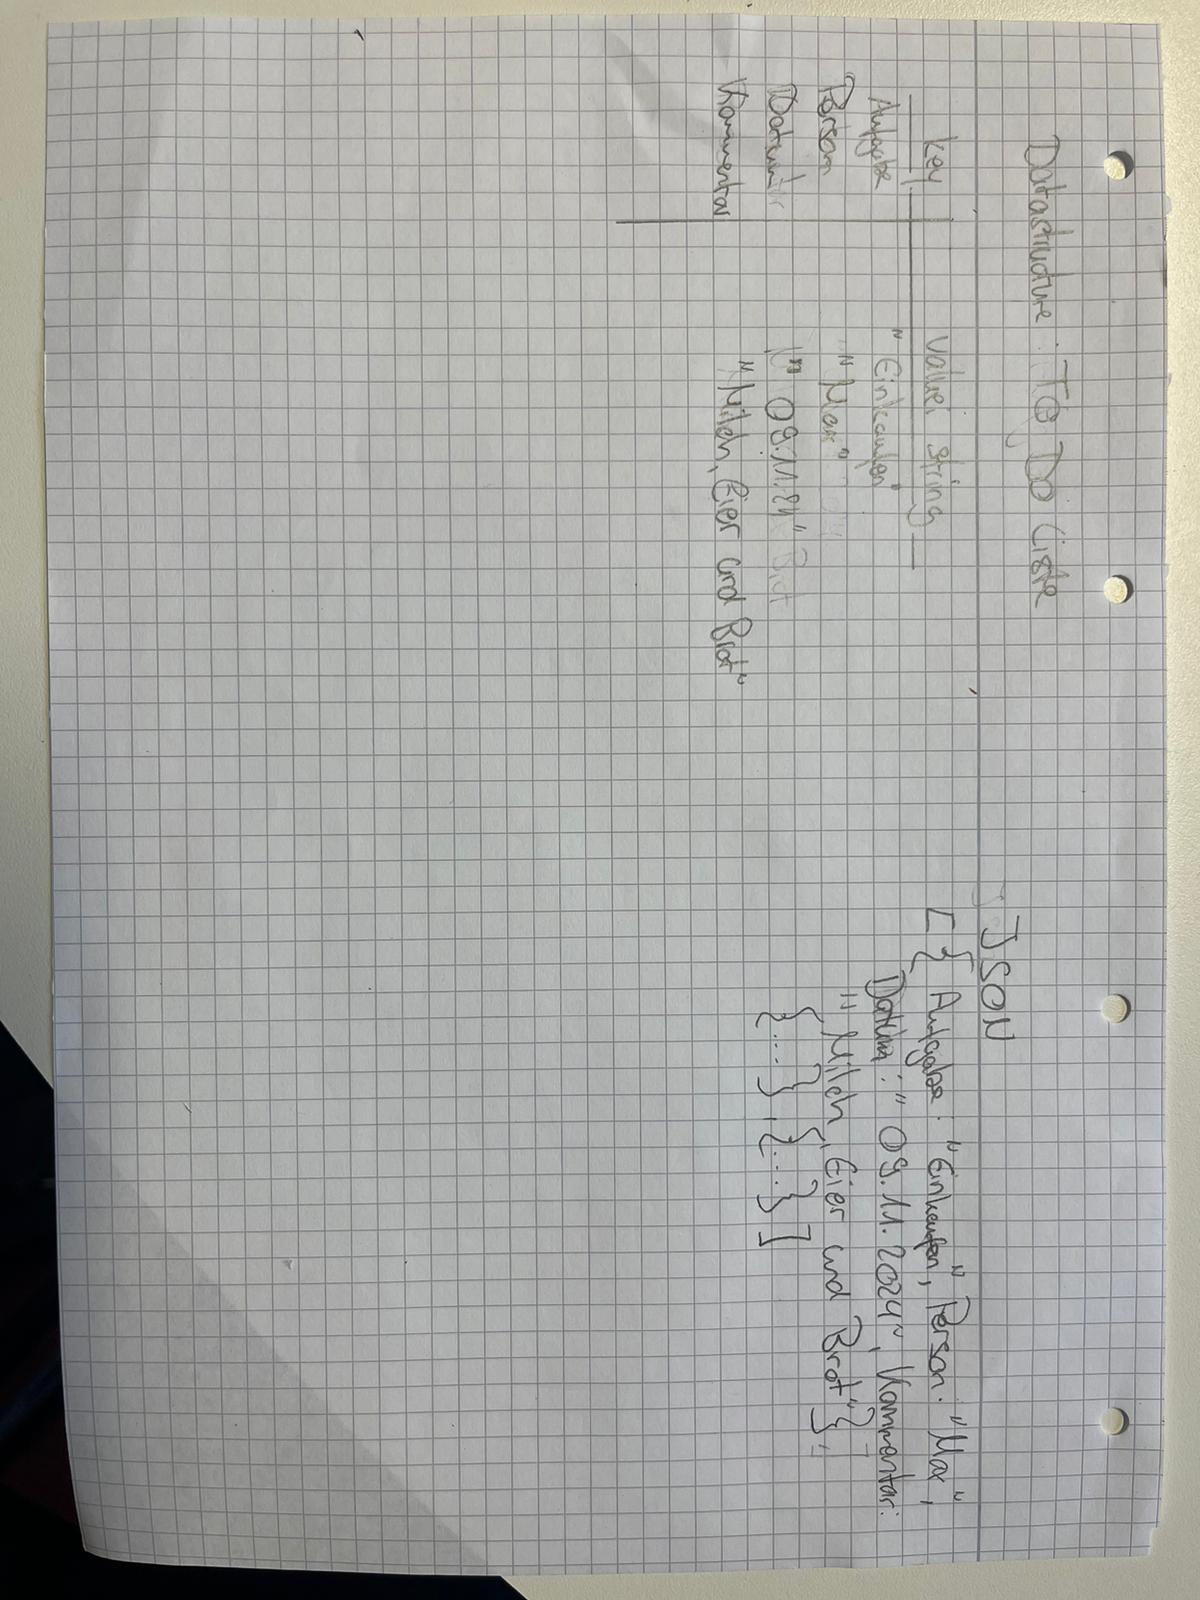 Datastructure : TO DO Liste
Key | Value: String
Aufgabe | "Einkaufen"
Person | "Max"
Datum | "09.11.24"
Kommentar | "Milch, Eier und Brot"
JSON
[ { Aufgabe: "Einkaufen", Person: "Max",
Datum: "09.11.2024", Kommentar:
"Milch, Eier und Brot" },
{...}, {...} ]